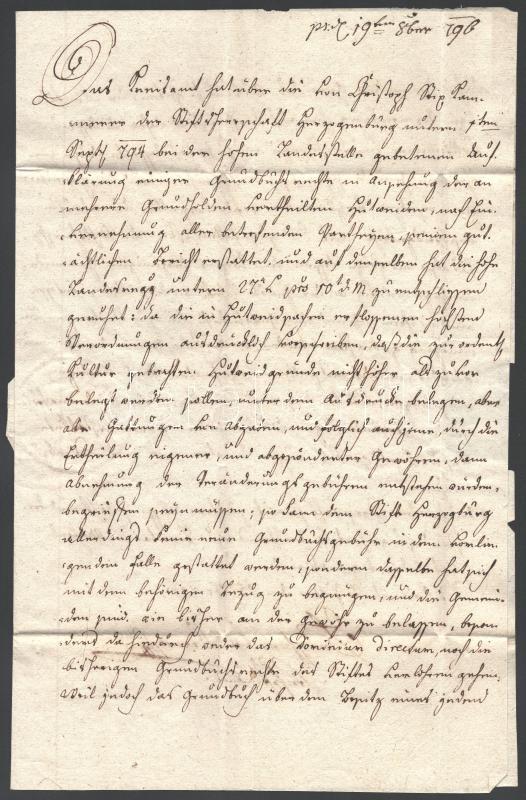 ps. d. 19ten 8ber 796
Das Kreisamt hat über die von Christoph Stix Kam-
merer der Stiftsherrschaft Herzogenburg unterm 1ten
Septb 794 bei der hohen Landesstelle gebetenen Auf-
klärung einiger Grundbuchsrechte in Ansehung der an
mehrere Grundholden vertheilten Hutweiden, nach Ein-
vernehmung aller betrefenden Partheyen, seinen gut-
ächtlichen Bericht erstattet, und auf denselben hat die hohe
Landesregg unterm 27t pro 10t d. M. zu entschliessen
geruhet: da die in Hutweidsachen erflossenen höchsten
Verordnungen ausdrücklich vorschreiben, daß die zur ordentl
Kultur gebrachten Hutweidgründe nicht höher als zuvor
belegt werden sollen, unter dem Ausdrucke belegen, aber
alle Gattungen von Abgaben, und folglich auch jene, durch die
Ertheilung eigener, und abgesönderter Gewöhren, dann
Abnehmung der Veränderungsgebühren entstehen würden,
begriffen seyn müssen; so kann dem Stift Herzogburg
allerdings keine neue Grundbuchsgebühr in dem vorlie-
genden Falle gestattet werden, sondern dasselbe hat sich
mit dem behörigen Bezug zu begnügen, und die Gemein-
den sind wie bisher an der Gewöhr zu belassen, beson-
ders da hiedurch weder das Dominium Directum, noch die
bisherigen Grundbuchsrechte des Stiftes verlohren gehen.
Weil jedoch das Grundbuch über den Besitz eines jeden